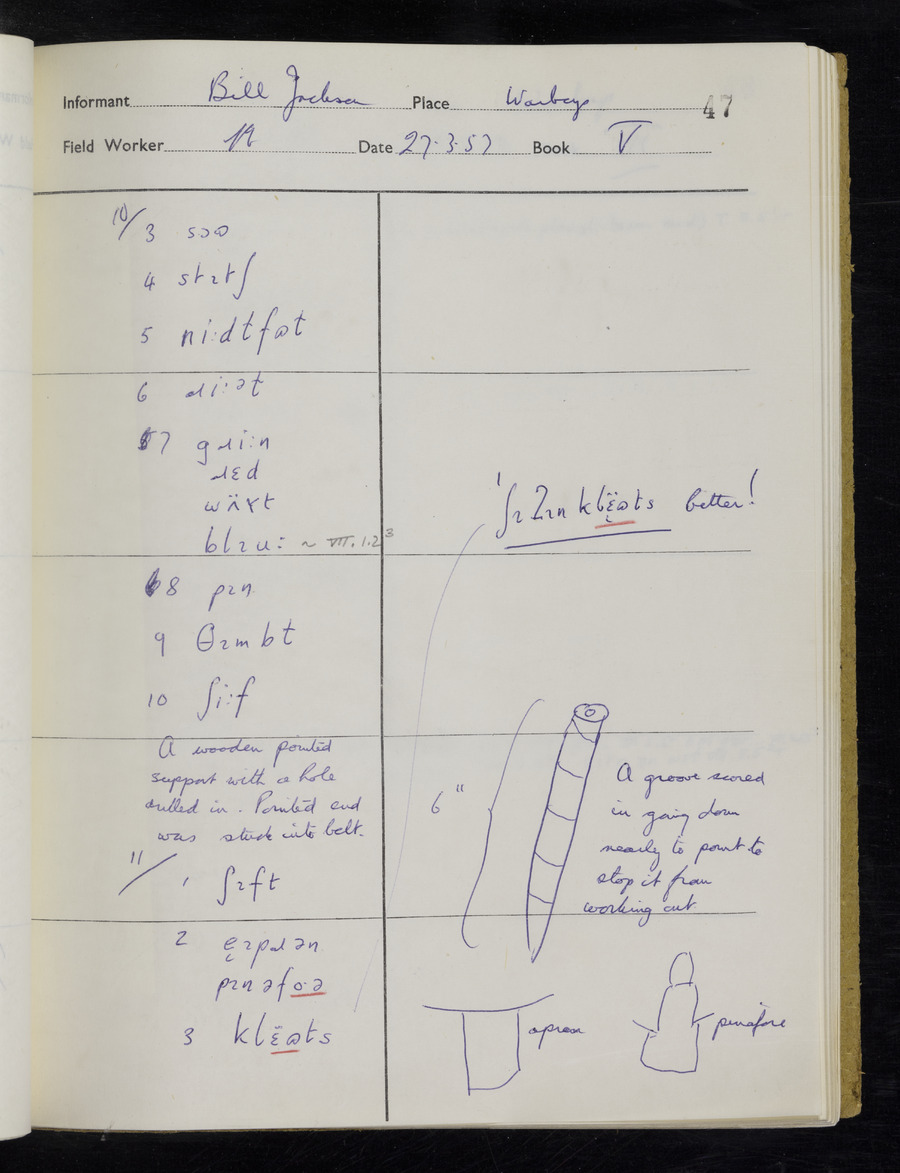 Informant Bill Jackson Place Warboys 47
Field Worker Date 27.3.57 Book V
10/ 3 sɔɷ
4 stɪtʃ
5 ni:dtfɷt
6 ɹi:ət
7 gɹi:n
ɹɛd
wäɤt
blɪu: ~ VII.1.2³
'ʃɪʔɪn klɛ̈ɷts better!
8 pɪn
9 θɪmbt
10 ʃi:f
A wooden pointed
support with a hole
drilled in. Pointed end
was stuck into belt.
6"
A groove scored
in going down
nearly to point to
stop it from
working out
11/ 1 ʃɪft
2 ɛɪpɹən
pɪnəfɔ·ə
apron
pinafore
3 klɛ̈ɷts